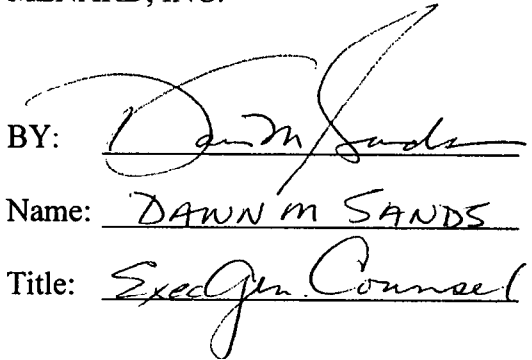 MENARD, INC.
BY: Dawn M Sands
Name: DAWN M SANDS
Title: Exec Gen. Counsel